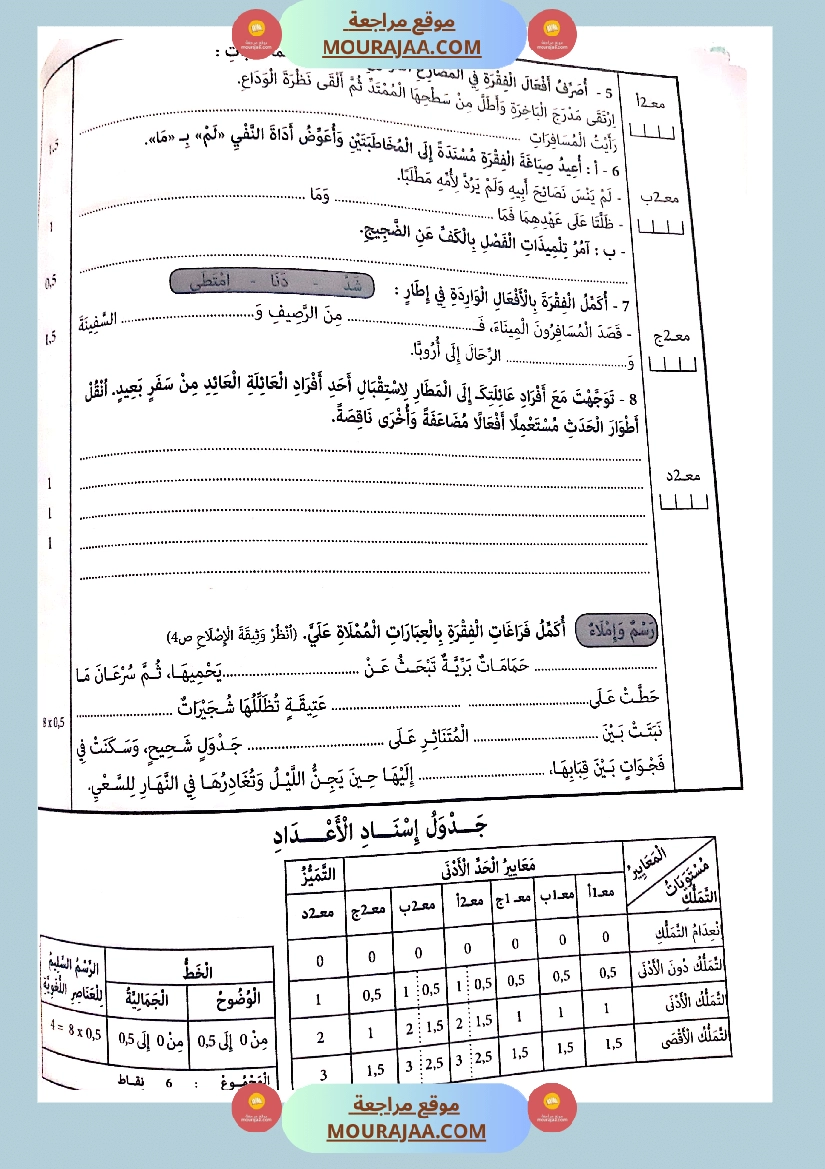 موقع مراجعة
MOURAJAA.COM
5 - أُصَرِّفُ أَفْعَالَ الْفِقْرَةِ فِي الْمُضَارِعِ
معـ2أ
اِرْتَقَى مَدْرَجَ الْبَاخِرَةِ وَأَطَلَّ مِنْ سَطْحِهَا الْمُمْتَدِّ ثُمَّ أَلْقَى نَظْرَةَ الْوَدَاعِ.
رَأَيْتُ الْمُسَافِرَاتِ ...............
1,5
6 - أ : أُعِيدُ صِيَاغَةَ الْفِقْرَةِ مُسْنَدَةً إِلَى الْمُخَاطَبَتَيْنِ وَأُعَوِّضُ أَدَاةَ النَّفْيِ «لَمْ» بِـ «مَا».
معـ2ب
- لَمْ يَنْسَ نَصَائِحَ أَبِيهِ وَلَمْ يَرُدَّ لِأُمِّهِ مَطْلَبًا.
- ظَلَّتَا عَلَى عَهْدِهِمَا فَمَا ............... وَمَا ...............
1
- ب : آمُرُ تِلْمِيذَاتِ الْفَصْلِ بِالْكَفِّ عَنِ الضَّجِيجِ.
0,5
7 - أُكَمِّلُ الْفِقْرَةَ بِالْأَفْعَالِ الْوَارِدَةِ فِي إِطَارٍ : شَدَّ - دَنَا - اِمْتَطَى
معـ2ج
- قَصَدَ الْمُسَافِرُونَ الْمِينَاءَ، فَـ............... مِنَ الرَّصِيفِ وَ............... السَّفِينَةَ
1,5
وَ............... الرِّحَالَ إِلَى أُرُوبَّا.
8 - تَوَجَّهْتَ مَعَ أَفْرَادِ عَائِلَتِكَ إِلَى الْمَطَارِ لِاسْتِقْبَالِ أَحَدِ أَفْرَادِ الْعَائِلَةِ الْعَائِدِ مِنْ سَفَرٍ بَعِيدٍ. اُنْقُلْ
أَطْوَارَ الْحَدَثِ مُسْتَعْمِلًا أَفْعَالًا مُضَاعَفَةً وَأُخْرَى نَاقِصَةً.
معـ2د
1
1
1
رَسْمٌ وَإِمْلَاءٌ أُكَمِّلُ فَرَاغَاتِ الْفِقْرَةِ بِالْعِبَارَاتِ الْمُمْلَاةِ عَلَيَّ. (اُنْظُرْ وَثِيقَةَ الْإِصْلَاحِ ص4)
............... حَمَامَاتٌ بَرِّيَّةٌ تَبْحَثُ عَنْ ............... يَحْمِيهَا، ثُمَّ سُرْعَانَ مَا
حَطَّتْ عَلَى ............... ............... عَتِيقَةٍ تُظَلِّلُهَا شُجَيْرَاتٌ ...............
8 x 0,5
نَبَتَتْ بَيْنَ ............... الْمُتَنَاثِرِ عَلَى ............... جَدْوَلٍ شَحِيحٍ، وَسَكَنَتْ فِي
فَجْوَاتٍ بَيْنَ قِبَابِهَا، ............... إِلَيْهَا حِينَ يَجِنُّ اللَّيْلُ وَتُغَادِرُهَا فِي النَّهَارِ لِلسَّعْيِ.
جَدْوَلُ إِسْنَادِ الْأَعْدَادِ
الْمَعَايِيرُ مَعَايِيرُ الْحَدِّ الْأَدْنَى التَّمَيُّزُ
مُسْتَوَيَاتُ التَّمَلُّكِ معـ1أ معـ1ب معـ1ج معـ2أ معـ2ب معـ2ج معـ2د
اِنْعِدَامُ التَّمَلُّكِ 0 0 0 0 0 0 0
التَّمَلُّكُ دُونَ الْأَدْنَى 0,5 0,5 0,5 0,5 1 0,5 1 0,5 1
التَّمَلُّكُ الْأَدْنَى 1 1 1 1,5 2 1,5 2 1 2
التَّمَلُّكُ الْأَقْصَى 1,5 1,5 1,5 2,5 3 2,5 3 1,5 3
الْخَطُّ الرَّسْمُ السَّلِيمُ لِلْعَنَاصِرِ اللُّغَوِيَّةِ
الْوُضُوحُ الْجَمَالِيَّةُ
مِنْ 0 إِلَى 0,5 مِنْ 0 إِلَى 0,5 4 = 8 x 0,5
الْمَجْمُوعُ : 6 نِقَاط
موقع مراجعة
MOURAJAA.COM